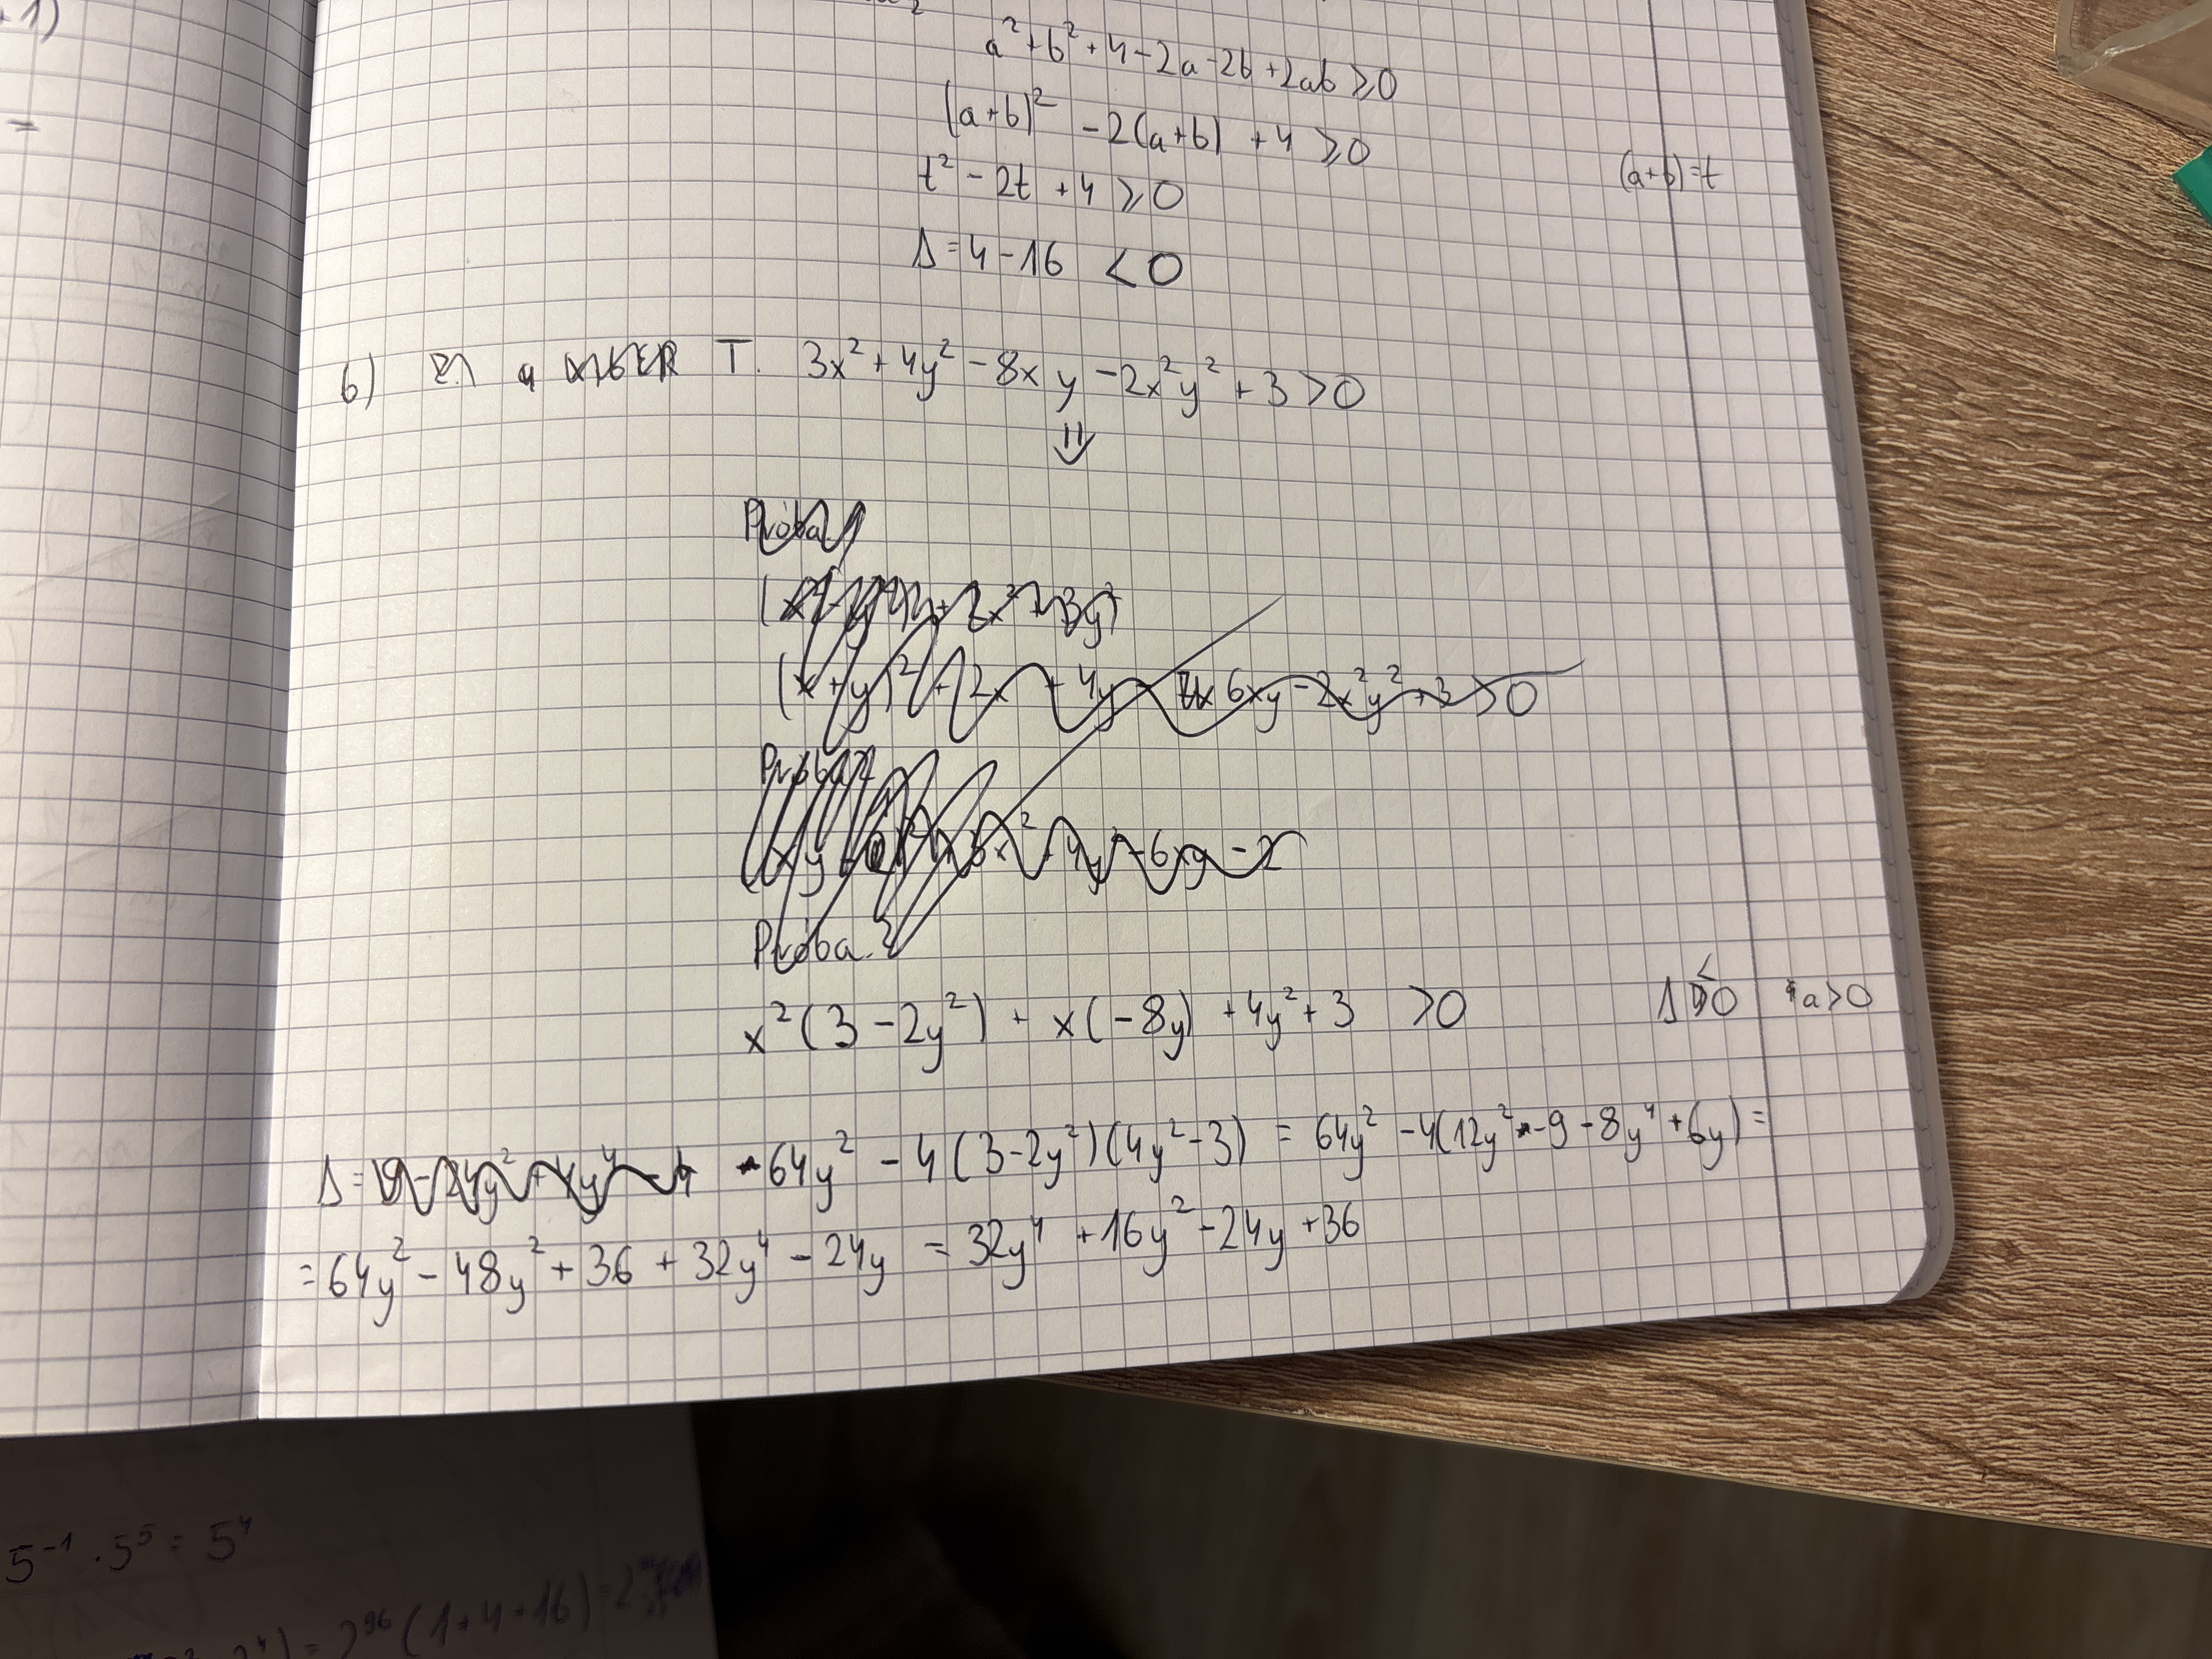 +1)
=
a² + b² + 4 - 2a - 2b + 2ab ⩾ 0
(a+b)² - 2(a+b) + 4 ⩾ 0
t² - 2t + 4 ⩾ 0 (a+b) = t
Δ = 4 - 16 < 0
6) T. 3x² + 4y² - 8xy - 2x²y² + 3 > 0
⇓
Próba
(x+y)² + 2x + 4y - 6xy - 2x²y² + 3 > 0
Próba 2
3x² + 4y² - 6xy - 2
Próba. 3
x²(3 - 2y²) + x(-8y) + 4y² + 3 > 0 Δ < 0 a > 0
Δ = 64y² - 4(3-2y²)(4y²-3) = 64y² - 4(12y² - 9 - 8y⁴ + 6y) =
= 64y² - 48y² + 36 + 32y⁴ - 24y = 32y⁴ + 16y² - 24y + 36
5⁻¹ · 5⁵ = 5⁴
) = 2⁹⁶(1+4+16) = 2